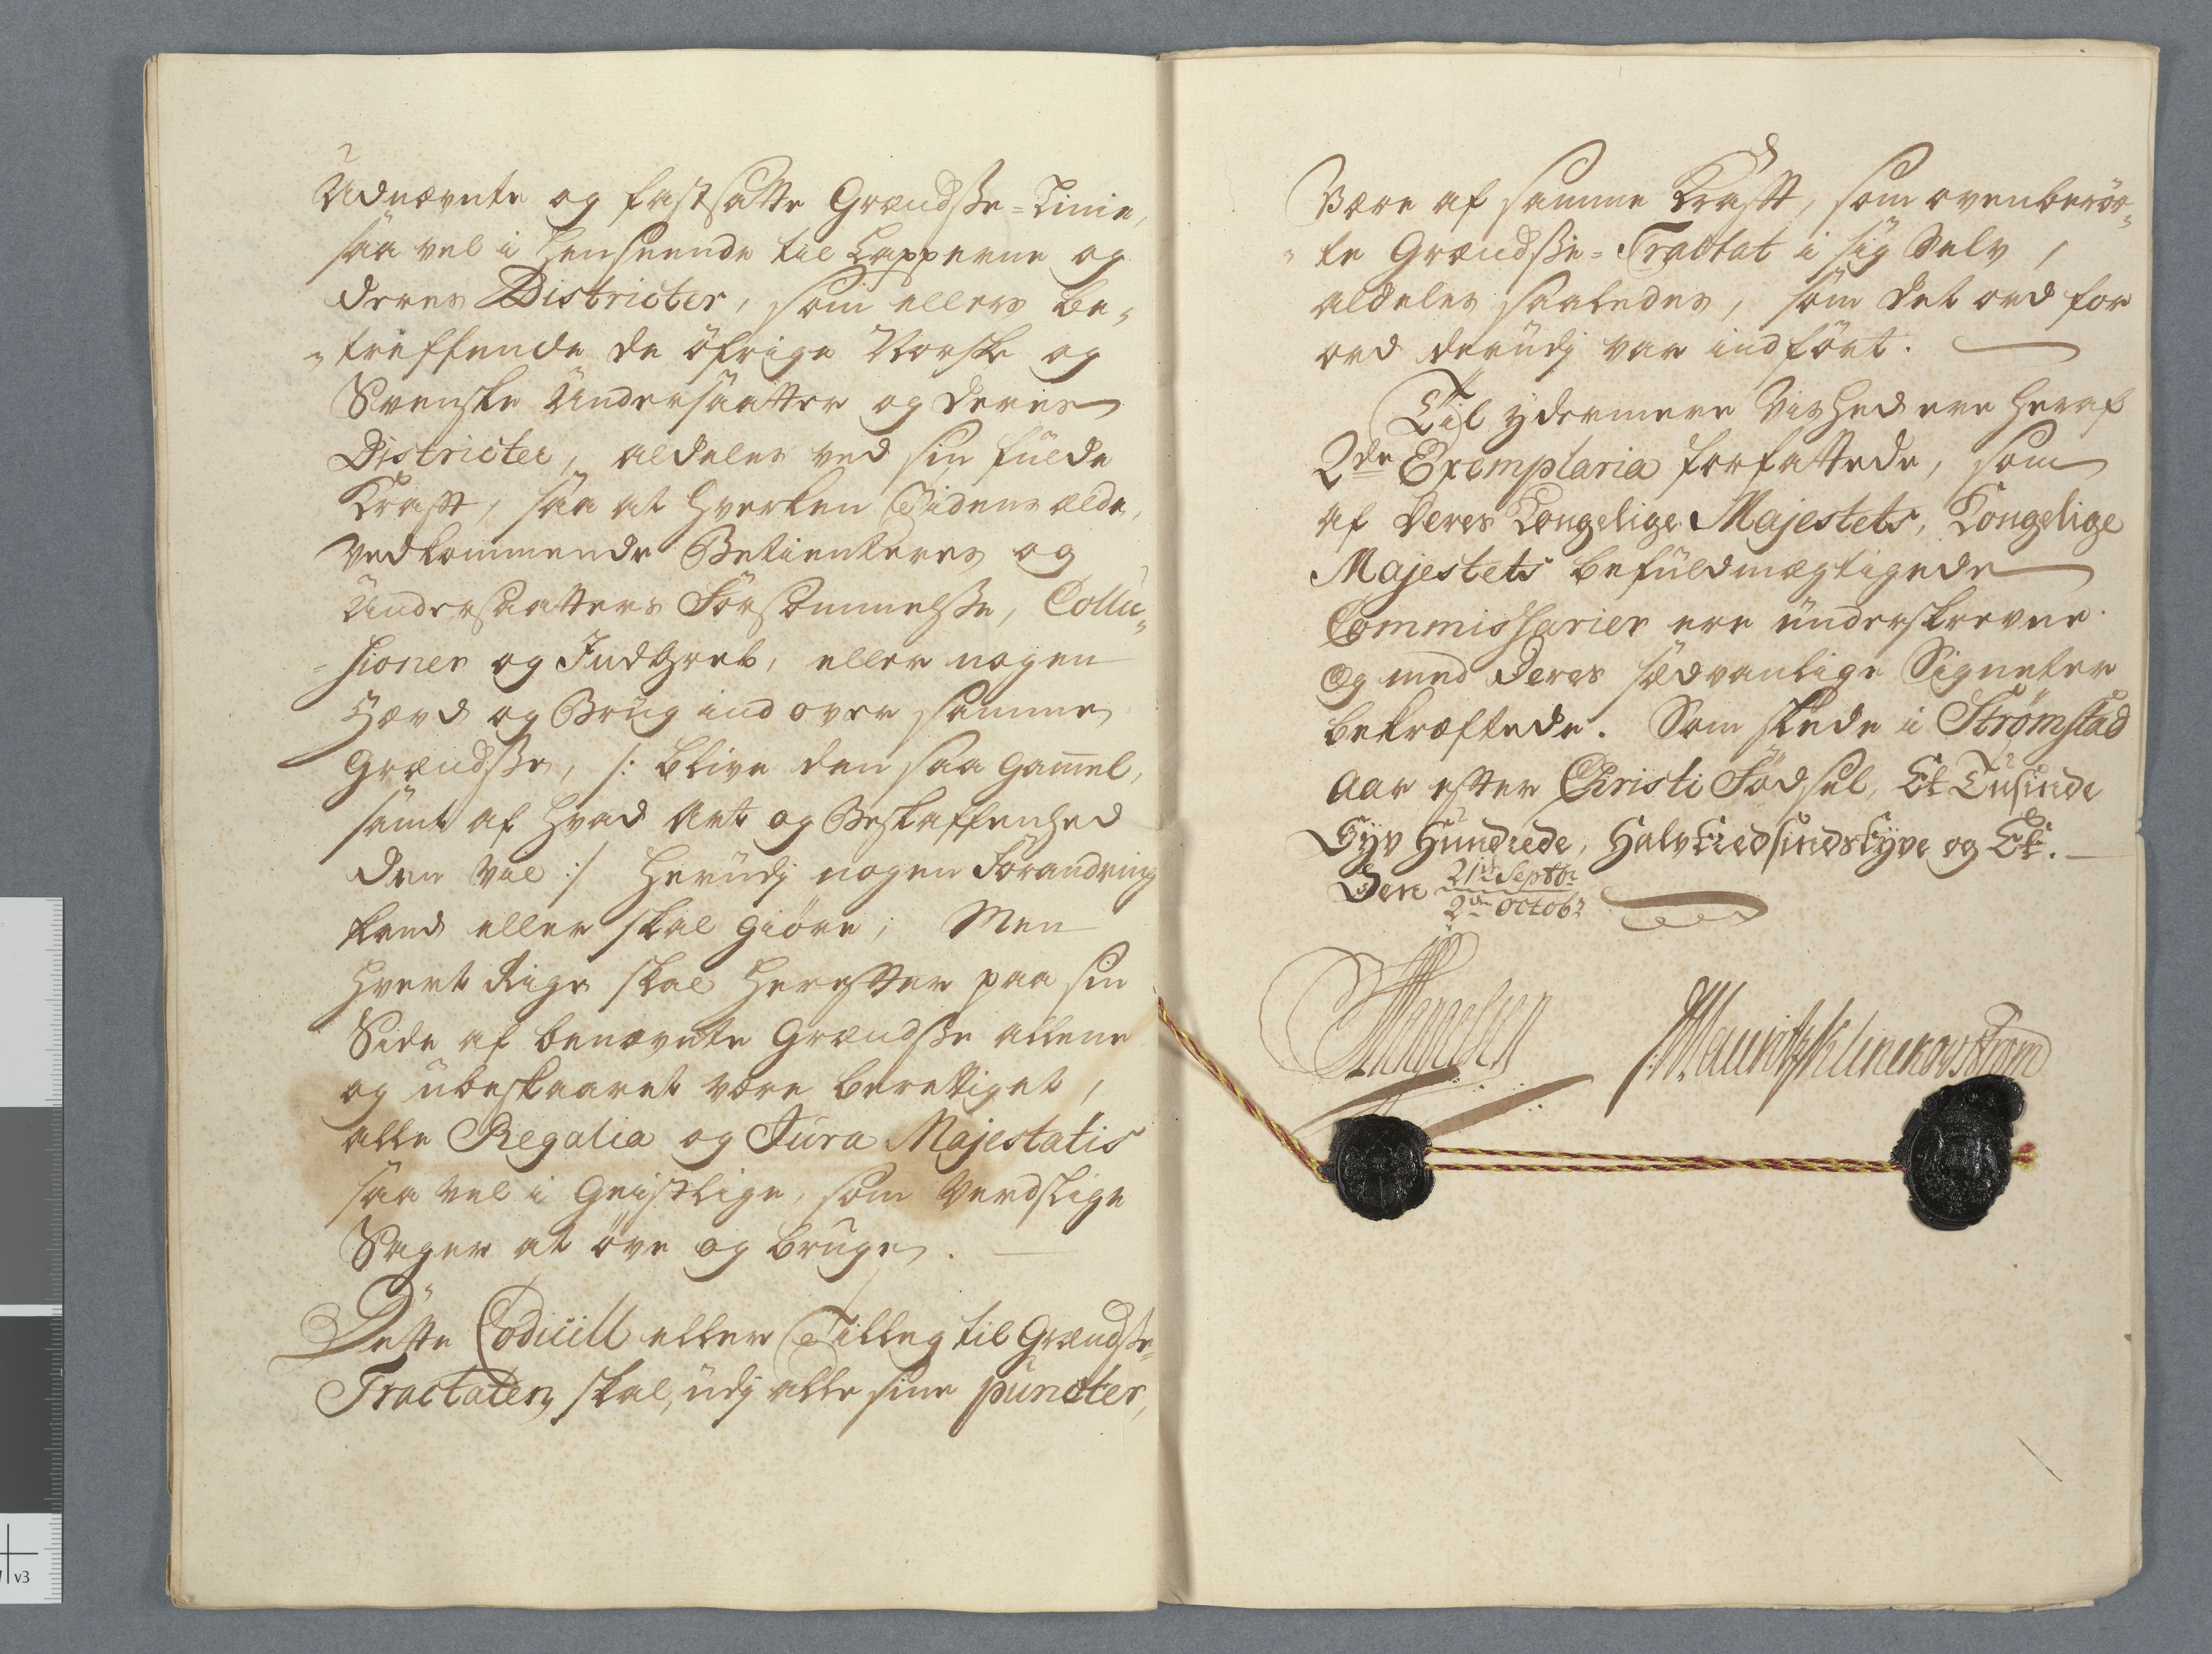 Udnævnte og fastsatte Grændsse=Linie,
saa vel i henseende til Lapperne og
deres Districter, som ellers be„
„treffende de öfrige Norske og
Svenske Undersaatter og deres
Districter, aldeles ved sin fulde
Krafft, saa at hverken Tidens ælde,
vedkommende Betienteres og
Undersaatters Forsömmelsse, Collu„
„sioner og Indgreb, eller nogen
Hævd og Brug ind over samme
Grændsse, /: blive den saa gam̅el,
samt af hvad Art og Beskaffenhed
den vil :/ herudj nogen Forandring
kand eller skal giöre; Men
hvert Rige skal herefter paa sin
Side af benævnte Grændsse allene
og ubeskaaret være berettiget,
alle Regalia og Jura Majestatis
saa vel i Geistlige, som Verdslige
Sager at öve og bruge.
Dette Codicill eller Tilleg til Grændsse=
Tractaten skal, udj alle sine puncter,
Være af samme Krafft, som ovenberör„
„te Grændsse=Tractat i sig Selv,
aldeles saaledes, som det ord for
ord derudj var indfört.
Til ydermere Vished ere heraf
2de Exemplaria forfattede, som
af Deres Kongelige Majestets, Kongelige
Majestets befuldmægtigede
Commissarier ere underskrevne
og med Deres sædvanlige Signeter
bekræftede. Som skede i Strømstad
Aar efter Christi Födsel, Et Tusinde
Syv Hundrede, Halvtredsindstyve og Et.
Den 21de Septbr
2den Octobr
Mangelsen J: Mauritz Klinckowström
v3